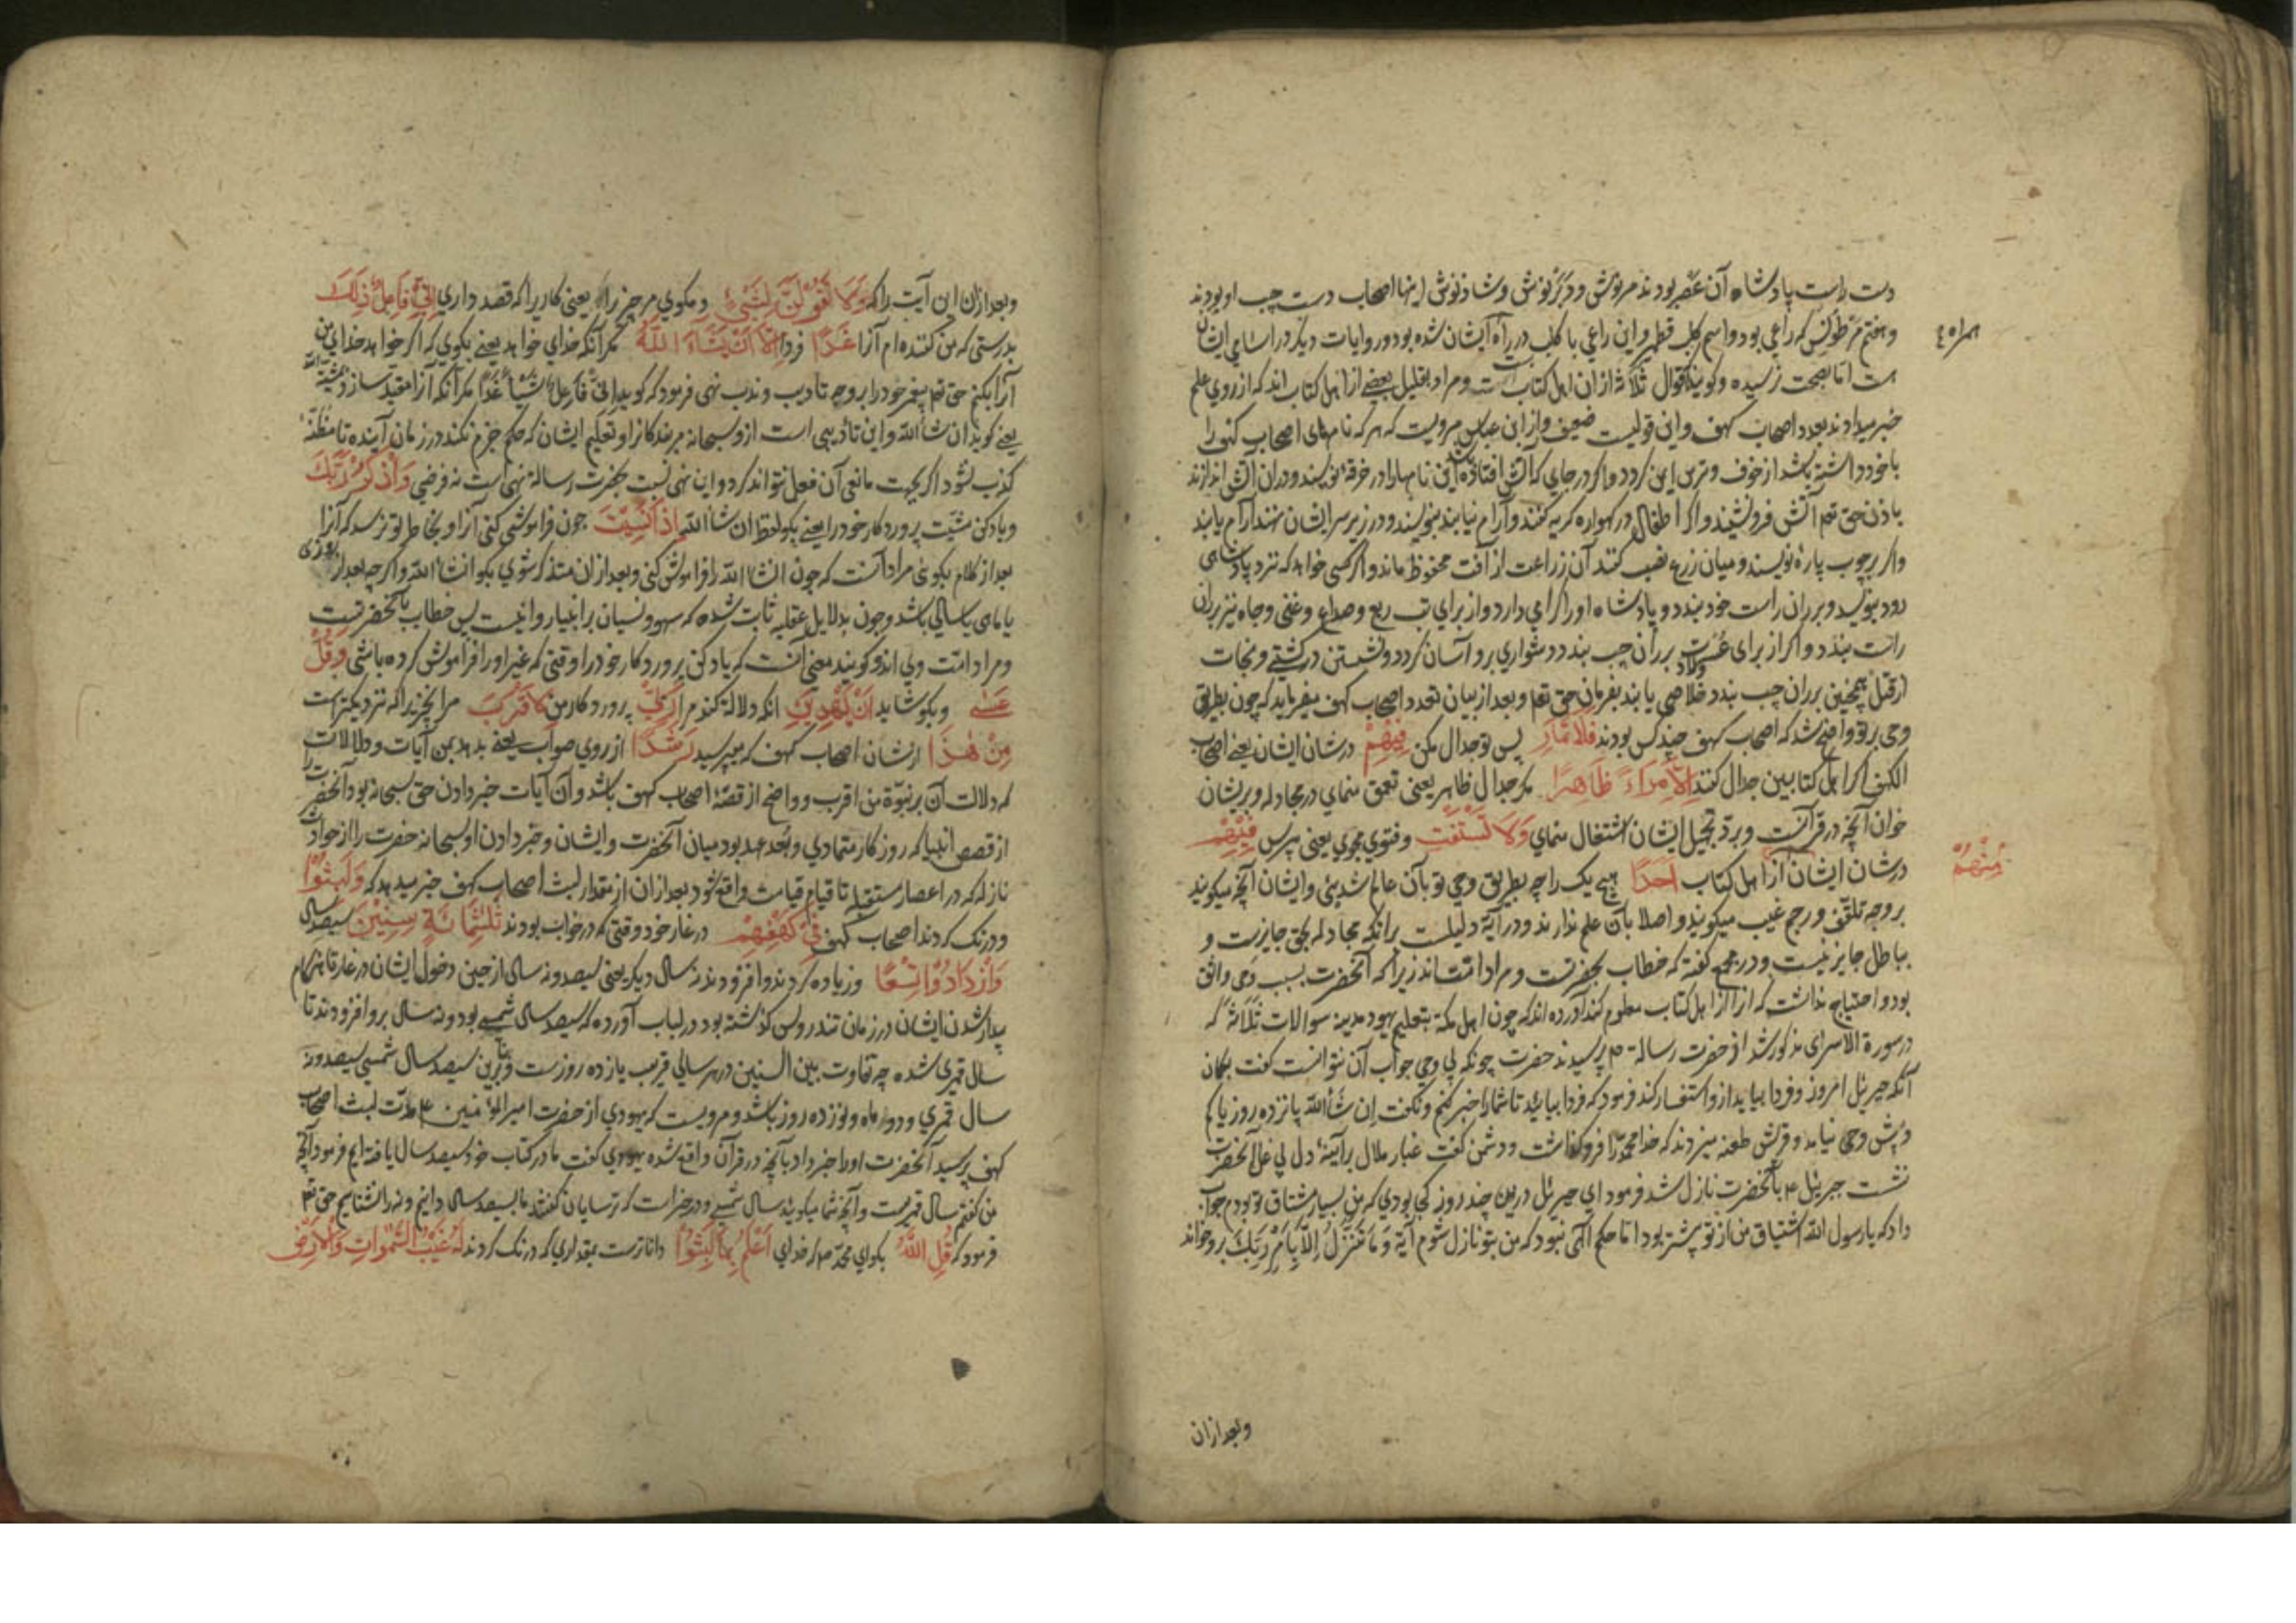 دست راست پادشاه آن عصر بودند مرنوش و دبرنوش و شادنوش اینها اصحاب دست چپ او بودند
و هفتم مرطونس که راعی بود و اسم کلب قطمیر و این راعی با کلب در راه ایشان شده بود و روایات دیگر در اسامی ایشان
همراه
است اما بصحت نرسیده و گویند اقوال ثلاثه از ان اهل کتابست و مراد بقلیل بعضی از اهل کتاب اند که از روی علم
خبر میدادند بعدد اصحاب کهف و این قولیست ضعیف و از ابن عباس مرویست که هر که نامهای اصحاب کهف را
با خود داشته باشد از خوف و ترس ایمن گردد و اگر در جای که آتش افتاده این نامها را در خرقه نویسند و در ان آتش اندازند
باذن حق تعم آتش فرو نشیند و اگر اطفال در گهواره گریه کنند و آرام نیابند بنویسند و در زیر سر ایشان نهند آرام یابند
و اگر بر چوب پاره نویسند و میان زرع نصب کنند آن زراعت از آفت محفوظ ماند و اگر کسی خواهد که نزد پادشاهی
رود بنویسد و بر ران راست خود بندد و پادشاه او را گرامی دارد و از برای تب ربع و صداع و غنی و جاه نیز بر ران
راست بندد و اگر از برای عسرت ولاد بر ران چپ بندد دشواری بر و آسان گردد و نشستن در کشتی و نجات
از قتل همچنین بر ران چپ بندد خلاصی یابد بفرمان حق تعم و بعد از بیان تعدد اصحاب کهف میفرماید که چون بطریق
وحی بر تو واضح شد که اصحاب کهف چند کس بودند فَلَا تُمَارِ پس تو جدال مکن فِيهِمْ در شان ایشان یعنی اصحاب
الکهف اگر اهل کتابین جدال کنند اِلَّا مِرَاءً ظَاهِرًا مگر جدال ظاهر یعنی تعمق منمای در مجادله و بر ایشان
خوان آنچه در قرآنست و بر د تجهیل ایشان اشتغال منمای وَلَا تَسْتَفْتِ و فتوی مجوی یعنی مپرس فِيهِمْ
مِنْهُمْ
در شان ایشان از اهل کتاب اَحَدًا هیچ یک را چه بطریق وحی تو بآن عالم شدهٔ و ایشان آنچه میگویند
بر وجه تلقف و رجم غیب میگویند و اصلا بآن علم ندارند و در آیة دلیلست بر انکه مجادله بحق جایزست و
بباطل جایز نیست و در مجمع گفته که خطاب بحضرتست و مراد امت اند زیرا که آنحضرت بسبب وحی واثق
بود و احتیاج نداشت که ازا از اهل کتاب معلوم کند آورده اند که چون اهل مکه بتعلیم یهود مدینه سوالات ثلاثه که
در سورة الاسری مذکور شد از حضرت رسالة ص پرسیدند حضرت چونکه بی وحی جواب آن نتوانست گفت بگمان
آنکه جبرئیل امروز و فردا بیاید ازو استفسار کند فرمود که فردا بیایید تا شما را خبر کنم و نگفت ان شاء الله پانزده روز یا کم
و بیش وحی نیامد و قریش طعنه میزدند که خدا محمد را فرو گذاشت و دشمن گفت غبار ملال بر آینهٔ دل بی غل آنحضرت
نشست جبرئیل ع بآنحضرت نازل شد فرمود ای جبرئیل درین چند روز کجا بودی که من بسیار مشتاق تو بودم جواب
داد که یا رسول الله اشتیاق من از تو بیشتر بود اما حکم الهی نبود که من بتو نازل شوم آیة وَمَا نَتَنَزَّلُ اِلَّا بِاَمْرِ رَبِّكَ برو خواند
و بعد ازان
و بعد ازان این آیت را که وَلَا تَقُولَنَّ لِشَيْءٍ و مگوی مر چیز را یعنی کاریرا که قصد داری اِنِّي فَاعِلٌ ذٰلِكَ
بدرستی که من کننده ام آنرا غَدًا فردا اِلَّا اَنْ يَشَاءَ اللّٰهُ مگر آنکه خدای خواهد یعنی بگوی که اگر خواهد خدای من
آنرا بکنم حق تعم پیغمبر خود را بر وجه تادیب و ندب نهی فرمود که گوید اِنِّي فَاعِلٌ شَيْئًا غَدًا مگر آنکه آنرا مقید سازد بمشیة الله
یعنی گوید ان شاء الله و این تادیبی است ازو سبحانه مر بندگانرا و تعلیم ایشان که حکم جزم نکنند در زمان آینده تا مظنه
کذب نشود اگر بجهت مانعی آن فعل نتواند کرد و این نهی نسبت بحضرت رسالة نهی است نه فرضی وَاذْكُرْ رَبَّكَ
و یاد کن مشیت پروردگار خود را یعنی بگو لفظ ان شاء الله اِذَا نَسِيتَ چون فراموشی کنی آنرا و بخاطر تو نرسد که آنرا
بعد از کلام بگوئی مراد آنست که چون انشاء الله را فراموش کنی و بعد ازان متذکر شوی بگو انشاء الله و اگر چه بعد از روزی
یا ماهی یا سالی باشد و چون بدلایل عقلیه ثابت شده که سهو و نسیان بر انبیا روا نیست پس خطاب بآنحضرتست
و مراد امت وی اند و گویند معنی آنست که یاد کن پروردگار خود را وقتی که غیر او را فراموش کرده باشی وَقُلْ
عَسٰى و بگو شاید اَنْ يَهْدِيَنِ انکه دلالة کند مرا رَبِّي پروردگار من لِاَقْرَبَ مر انچیز را که نزدیکترست
مِنْ هٰذَا از شان اصحاب کهف که میپرسید رَشَدًا از روی صواب یعنی بدهد بمن آیات و دلالات را
که دلالت آن بر نبوّة من اقرب و واضح از قصّهٔ اصحاب کهف باشد و آن آیات خبر دادن حق سبحانه بود آنحضرت
از قصص انبیا که روزگار متمادی و بُعد عهد بود میان آنحضرت و ایشان و خبر دادن او سبحانه حضرت را از حوادث
نازله که در اعصار مستقبله تا قیام قیامت واقع شود بعد ازان از مقدار لبث اصحاب کهف خبر میدهد که وَلَبِثُوا
و درنگ کردند اصحاب کهف فِي كَهْفِهِمْ در غار خود وقتی که در خواب بودند ثَلٰثَمِائَةٍ سِنِينَ سیصد سال
وَازْدَادُوا تِسْعًا و زیاده کردند و افزودند نه سال دیگر یعنی سیصد و نه سال از حین دخول ایشان در غار تا هنگام
بیدار شدن ایشان در زمان تندروس گذشته بود در لباب آورده که سیصد سال شمسی بود و نه سال برو افزودند تا
سال قمری شده چه تفاوت بین السنین در هر سالی قریب یازده روزست و بنابرین سیصد سال شمسی سیصد و نه
سال قمری و دو ماه و نوزده روز باشد و مرویست که یهودی از حضرت امیرالمؤمنین ع مدّت لبث اصحاب
کهف پرسید آنحضرت او را خبر داد بآنچه در قرآن واقع شده یهودی گفت ما در کتاب خود سیصد سال یافته ایم فرمود آنچه
من گفتم سال قمریست و آنچه شما میگویید سال شمسی و در خبر است که ترسایان گفتند ما سیصد سال دانیم و نه را نشناسیم حق تعم
فرمود که قُلِ اللّٰهُ بگو ای محمد ص که خدای اَعْلَمُ بِمَا لَبِثُوا داناترست بمقداری که درنگ کردند لَهُ غَيْبُ السَّمٰوَاتِ وَالْاَرْضِ